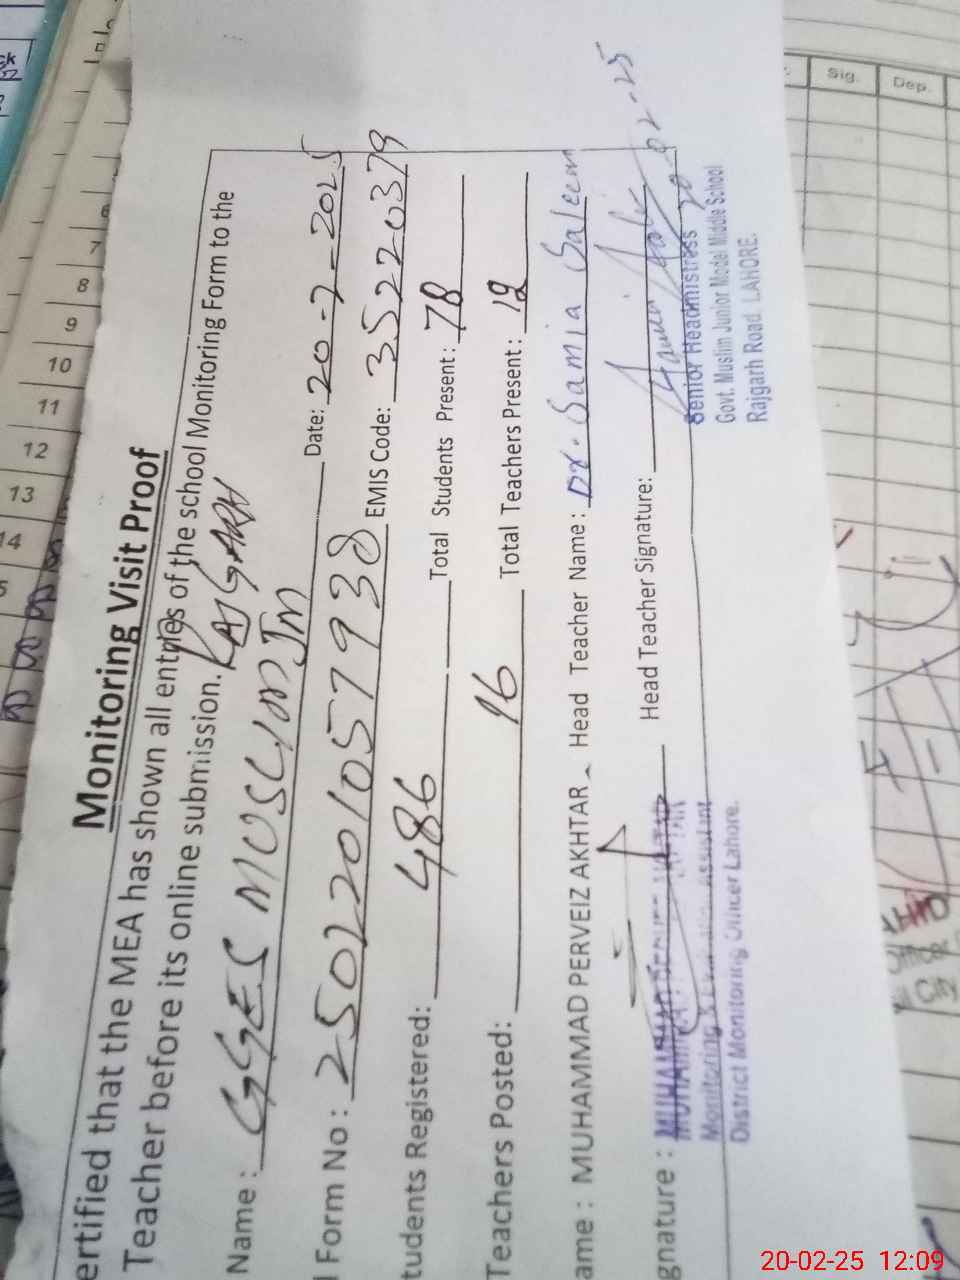 Monitoring Visit Proof
ertified that the MEA has shown all entries of the school Monitoring Form to the
Teacher before its online submission. RAJGARH
Name : GGES MUSLIM JM Date: 20-2-2025
l Form No : 2502201057938 EMIS Code: 35220379
tudents Registered: 486 Total Students Present: 78
Teachers Posted: 16 Total Teachers Present: 12
ame : MUHAMMAD PERVEIZ AKHTAR Head Teacher Name : Dr. Samia Saleem
gnature : Head Teacher Signature:
20-02-25
Senior Headmistress
Govt. Muslim Junior Model Middle School
Rajgarh Road, LAHORE.
Monitoring & Evaluation Assistant
District Monitoring Officer Lahore.
Sig.
Dep.
6
7
8
9
10
11
12
13
14
5
City
20-02-25 12:09